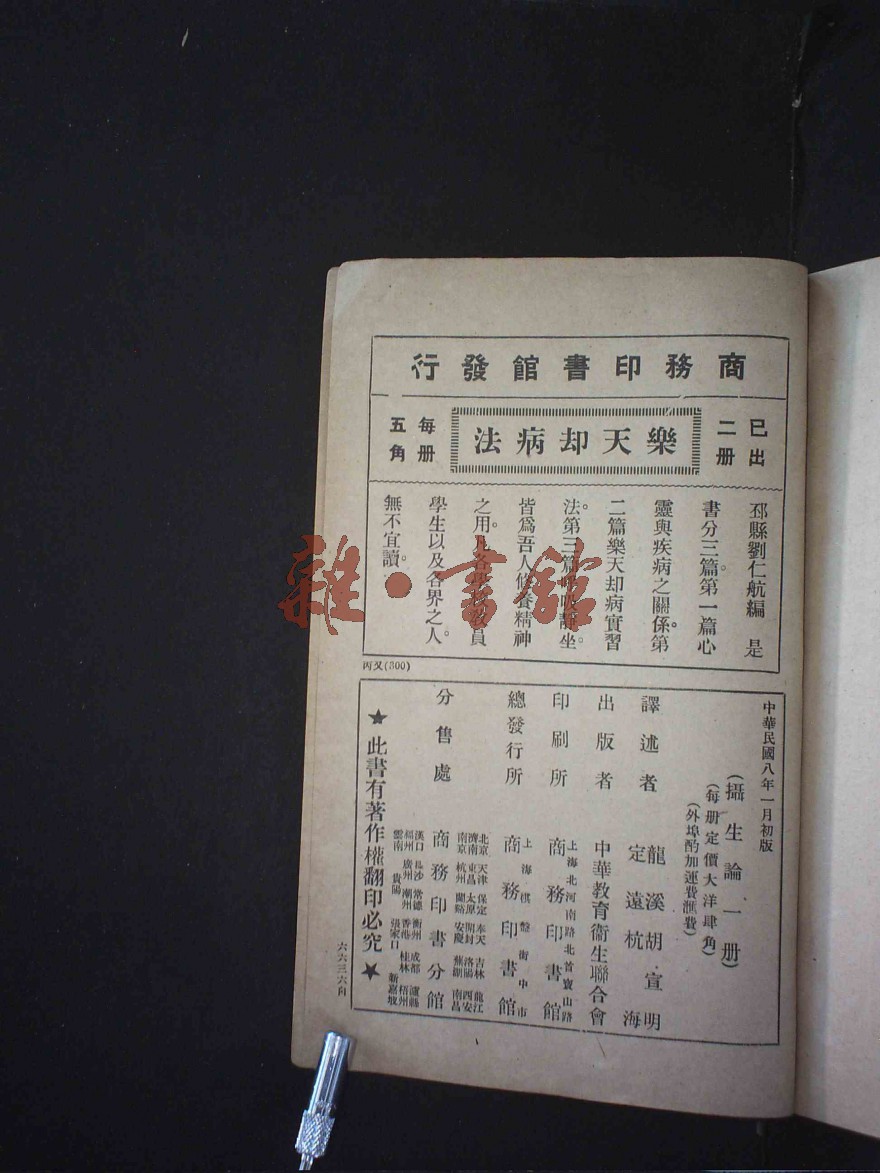 商務印書館發行
已出二册
樂天却病法
每册五角
邳縣劉仁航編　是
書分三篇。第一篇心
靈與疾病之關係。第
二篇樂天却病實習
法。第三篇呼吸靜坐。
皆爲吾人修養精神
之用。凡各學校教員
學生以及各界之人。
無不宜讀。
丙又(300)
中華民國八年一月初版
(攝生論一册)
(每册定價大洋肆角)
(外埠酌加運費滙費)
譯述者　龍溪胡宣明　定遠杭海
出版者　中華教育衞生聯合會
印刷所　上海北河南路北首寶山路　商務印書館
總發行所　上海棋盤街中市　商務印書館
分售處　商務印書分館
北京　天津　保定　奉天　吉林　龍江
濟南　東昌　太原　開封　洛陽　西安
南京　杭州　蘭谿　安慶　蕪湖　南昌
漢口　長沙　常德　衡州　成都　瀘縣
福州　廣州　潮州　香港　桂林　梧州
雲南　貴陽　張家口　新嘉坡
★此書有著作權翻印必究★
六六三六角
雜·書館